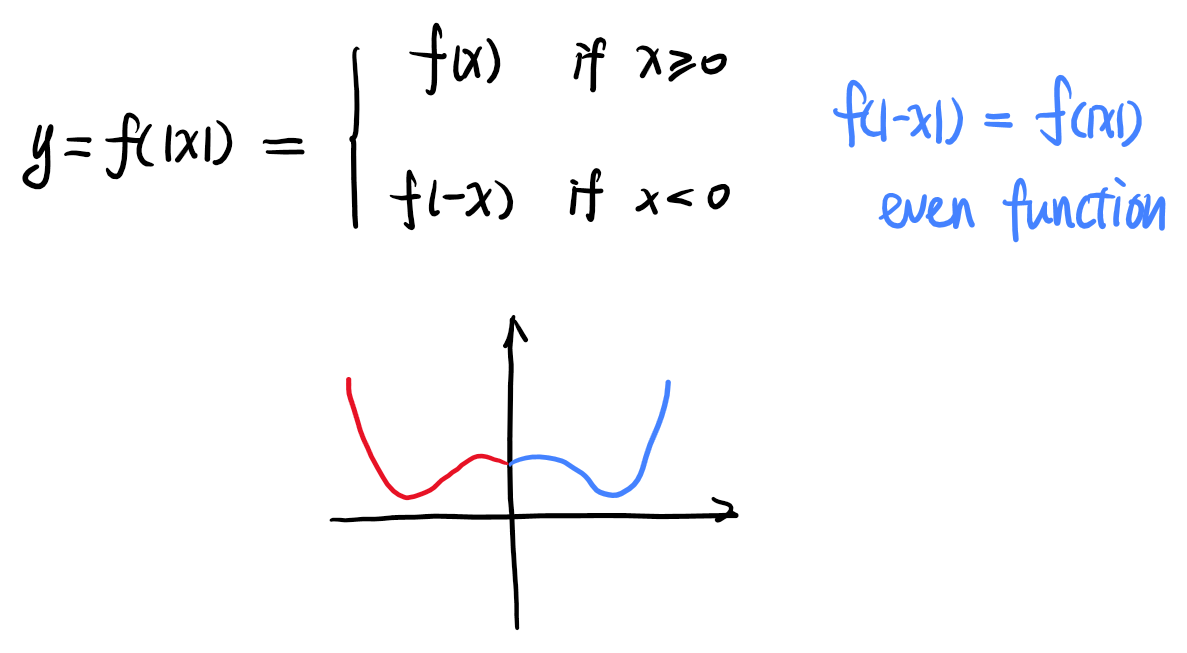 f(x) if x⩾0
y = f(|x|) =
f(-x) if x<0
f(|-x|) = f(|x|)
even function